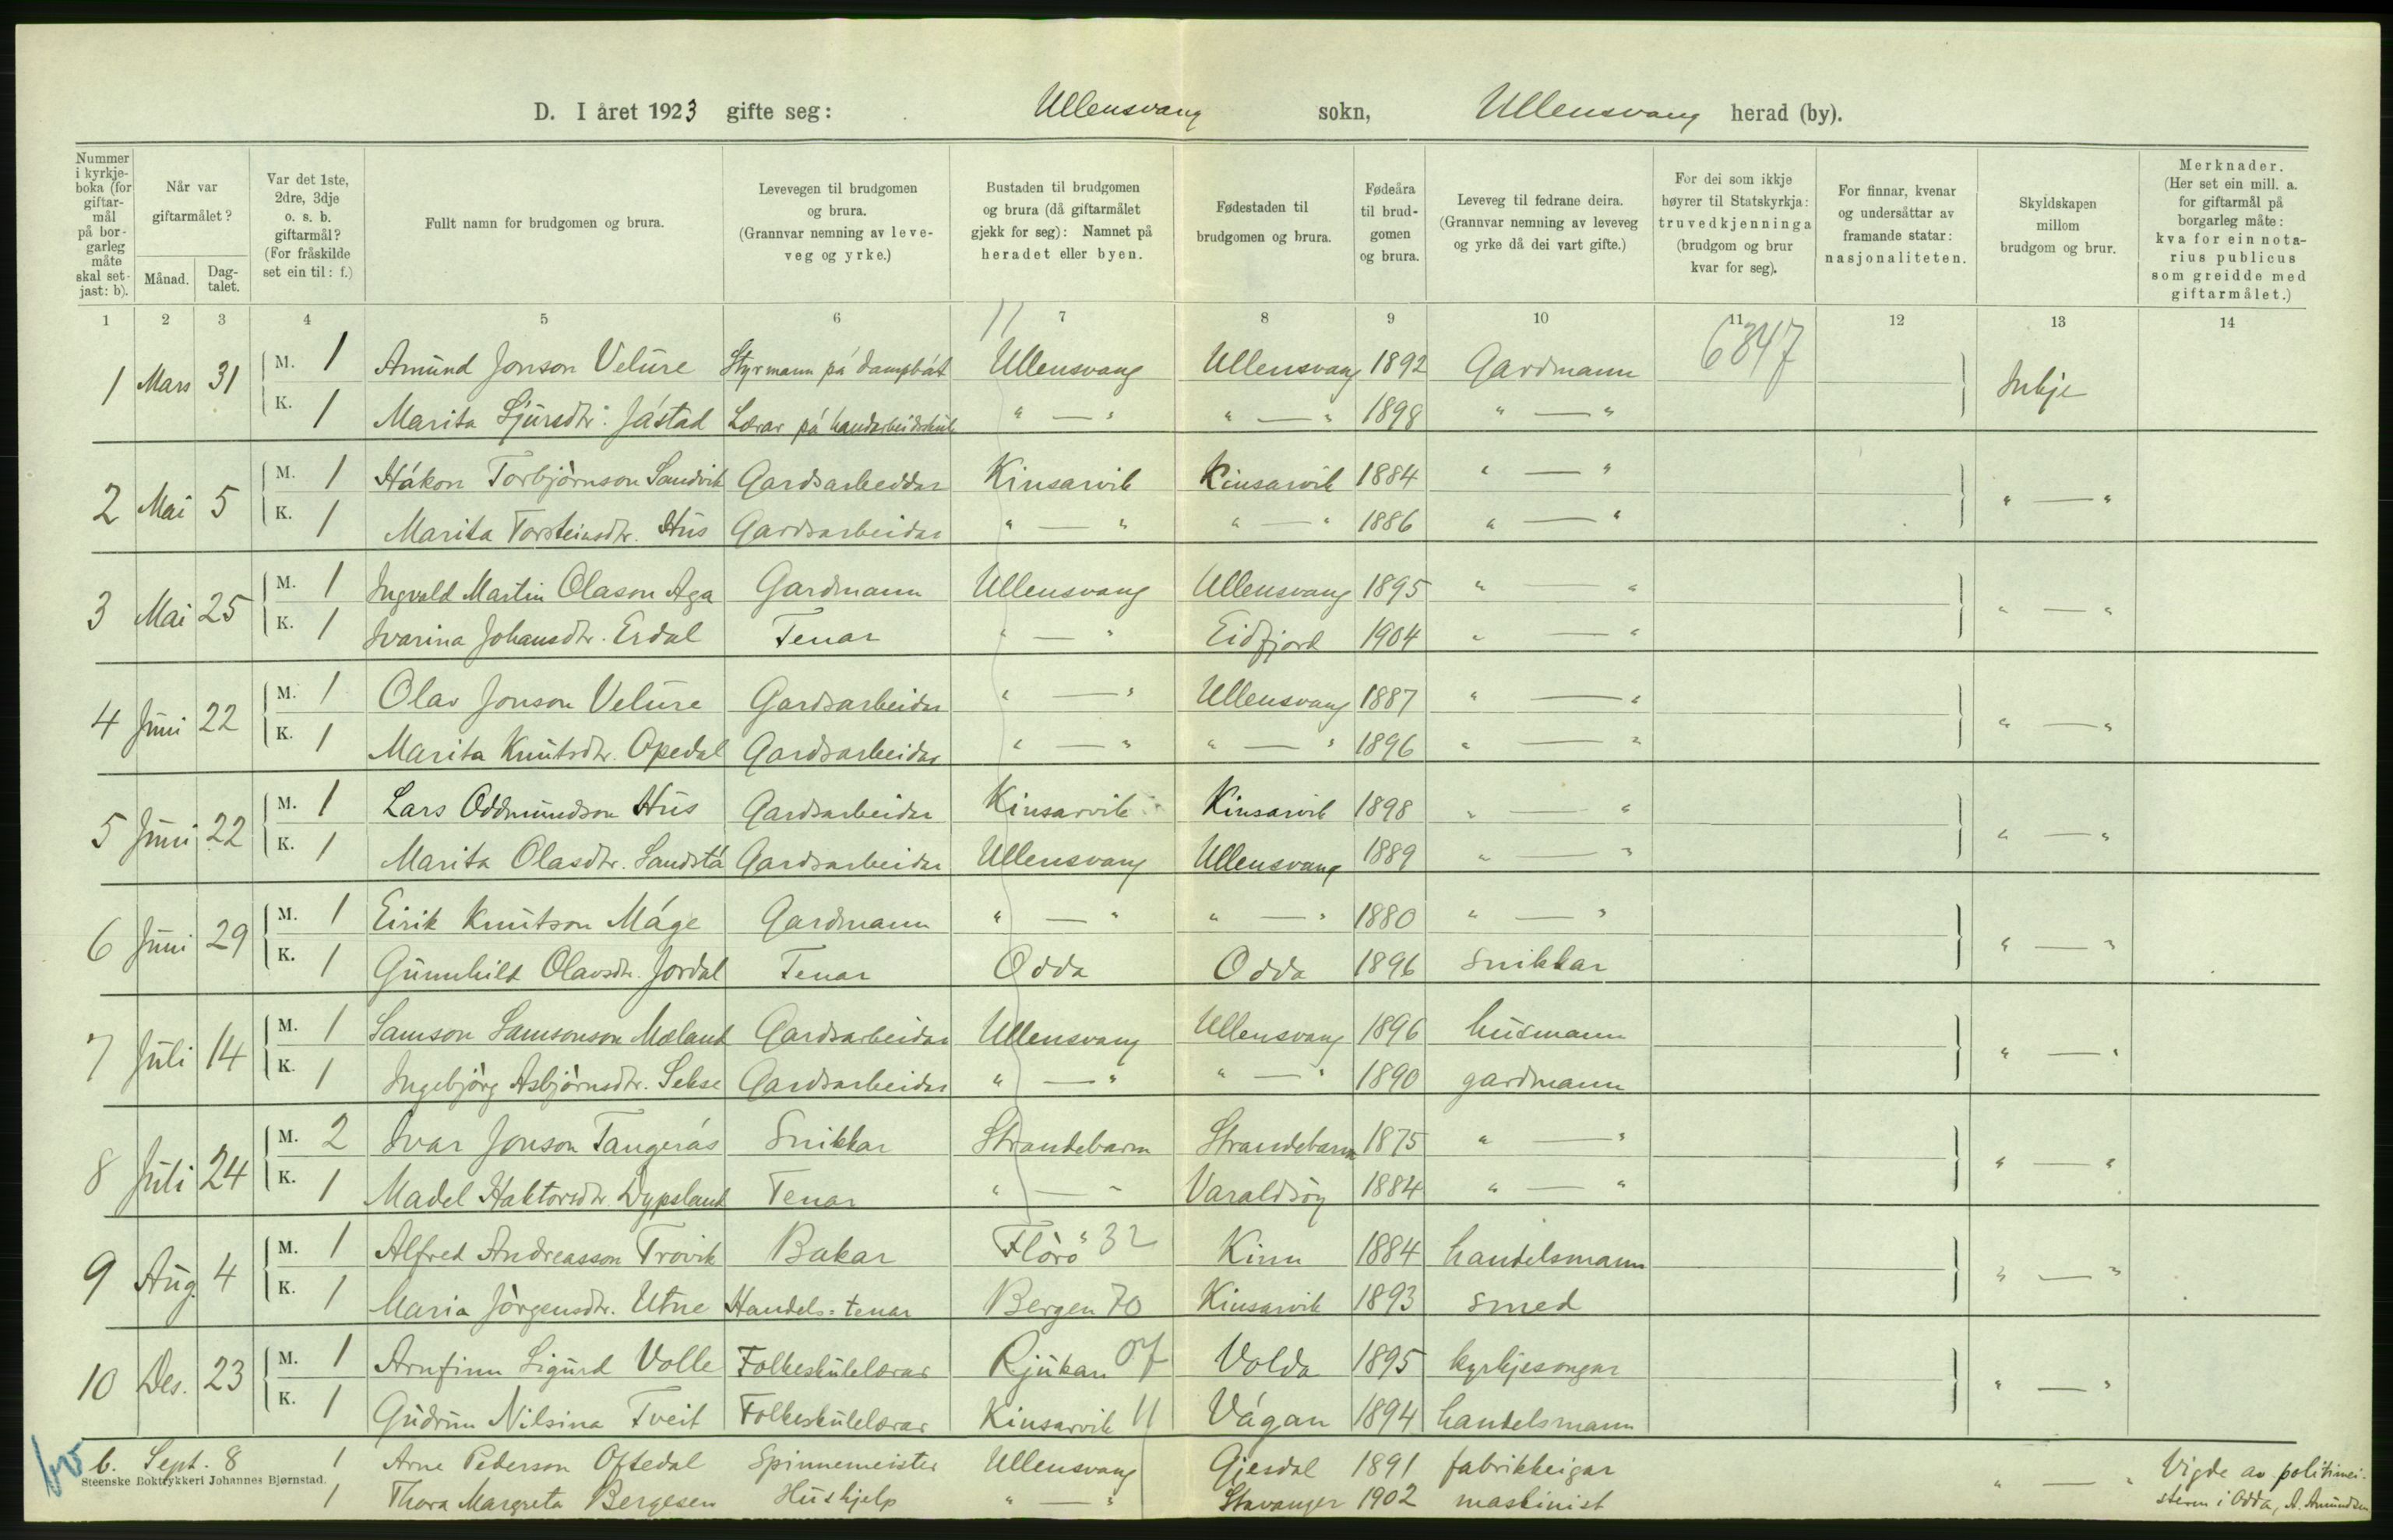 D. I året 1923 gifte seg: Ullensvang sokn, Ullensvang herad (by).
Nummer i kyrkje-boka (for giftar-mål på bor-garleg måte skal set-jast: b).
Når var giftarmålet?
Månad. Dag-talet.
Var det 1ste, 2dre, 3dje o. s. b. giftarmål? (For fråskilde set ein til: f.)
Fullt namn for brudgomen og brura.
Levevegen til brudgomen og brura. (Grannvar nemning av leve-veg og yrke.)
Bustaden til brudgomen og brura (då giftarmålet gjekk for seg): Namnet på heradet eller byen.
Fødestaden til brudgomen og brura.
Fødeåra til brud-gomen og brura.
Leveveg til fedrane deira. (Grannvar nemning av leveveg og yrke då dei vart gifte.)
For dei som ikkje høyrer til Statskyrkja: truvedkjenninga (brudgom og brur kvar for seg).
For finnar, kvenar og undersåttar av framande statar: nasjonaliteten.
Skyldskapen millom brudgom og brur.
Merknader. (Her set ein mill. a. for giftarmål på borgarleg måte: kva for ein nota-rius publicus som greidde med giftarmålet.)
1 2 3 4 5 6 7 8 9 10 11 12 13 14
11 6847
1 Mars 31 M. 1 Amund Jonson Velure Styrmann på dampbåt Ullensvang Ullensvang 1892 Gardmann Inkje
K. 1 Marita Sjursdtr. Jåstad Lærar på handarbeidskule " — " " — " 1898 " — "
2 Mai 5 M. 1 Håkon Torbjörnson Sandvik Gardsarbeidar Kinsarvik Kinsarvik 1884 " — " " — "
K. 1 Marita Torsteinsdtr. Hus Gardsarbeidar " — " " — " 1886 " — "
3 Mai 25 M. 1 Ingvald Martin Olason Aga Gardmann Ullensvang Ullensvang 1895 " — " " — "
K. 1 Ivarina Johansdtr. Erdal Tenar " — " Eidfjord 1904 " — "
4 Juni 22 M. 1 Olav Jonson Velure Gardsarbeidar " — " Ullensvang 1887 " — " " — "
K. 1 Marita Knutsdtr. Opedal Gardsarbeidar " — " " — " 1896 " — "
5 Juni 22 M. 1 Lars Oddmundson Hus Gardsarbeidar Kinsarvik Kinsarvik 1898 " — " " — "
K. 1 Marita Olasdtr. Sandstå Gardsarbeidar Ullensvang Ullensvang 1889 " — "
6 Juni 29 M. 1 Eirik Knutson Måge Gardmann " — " " — " 1880 " — " " — "
K. 1 Gunnhild Olavsdtr. Jordal Tenar Odda Odda 1896 snikkar
7 Juli 14 M. 1 Samson Samsonson Mæland Gardsarbeidar Ullensvang Ullensvang 1896 husmann " — "
K. 1 Ingebjörg Asbjörnsdtr. Sekse Gardsarbeidar " — " " — " 1890 gardmann
8 Juli 24 M. 2 Ivar Jonson Tangerås Snikkar Strandebarm Strandebarm 1875 " — " " — "
K. 1 Madel Haktorsdtr. Dypsland Tenar " — " Varaldsöy 1884 " — "
9 Aug. 4 M. 1 Alfred Andreasson Trovik Bakar Florö 32 Kinn 1884 handelsmann " — "
K. 1 Maria Jörgensdtr. Utne Handels=tenar Bergen 70 Kinsarvik 1893 smed
10 Des. 23 M. 1 Arnfinn Sigurd Volle Folkeskulelærar Rjukan 07 Volda 1895 kyrkjesongar " — "
K. 1 Gudrun Nilsina Tveit Folkeskulelærar Kinsarvik 11 Vågan 1894 handelsmann
b. Sept. 8 1 Arne Pederson Oftedal Spinnemeister Ullensvang Gjesdal 1891 fabrikkeigar " — " Vigde av politimei-
Steenske Boktrykkeri Johannes Bjørnstad.
1 Thora Margreta Bergesen Hushjelp " — " Stavanger 1902 maskinist steren i Odda, A. Amundsen